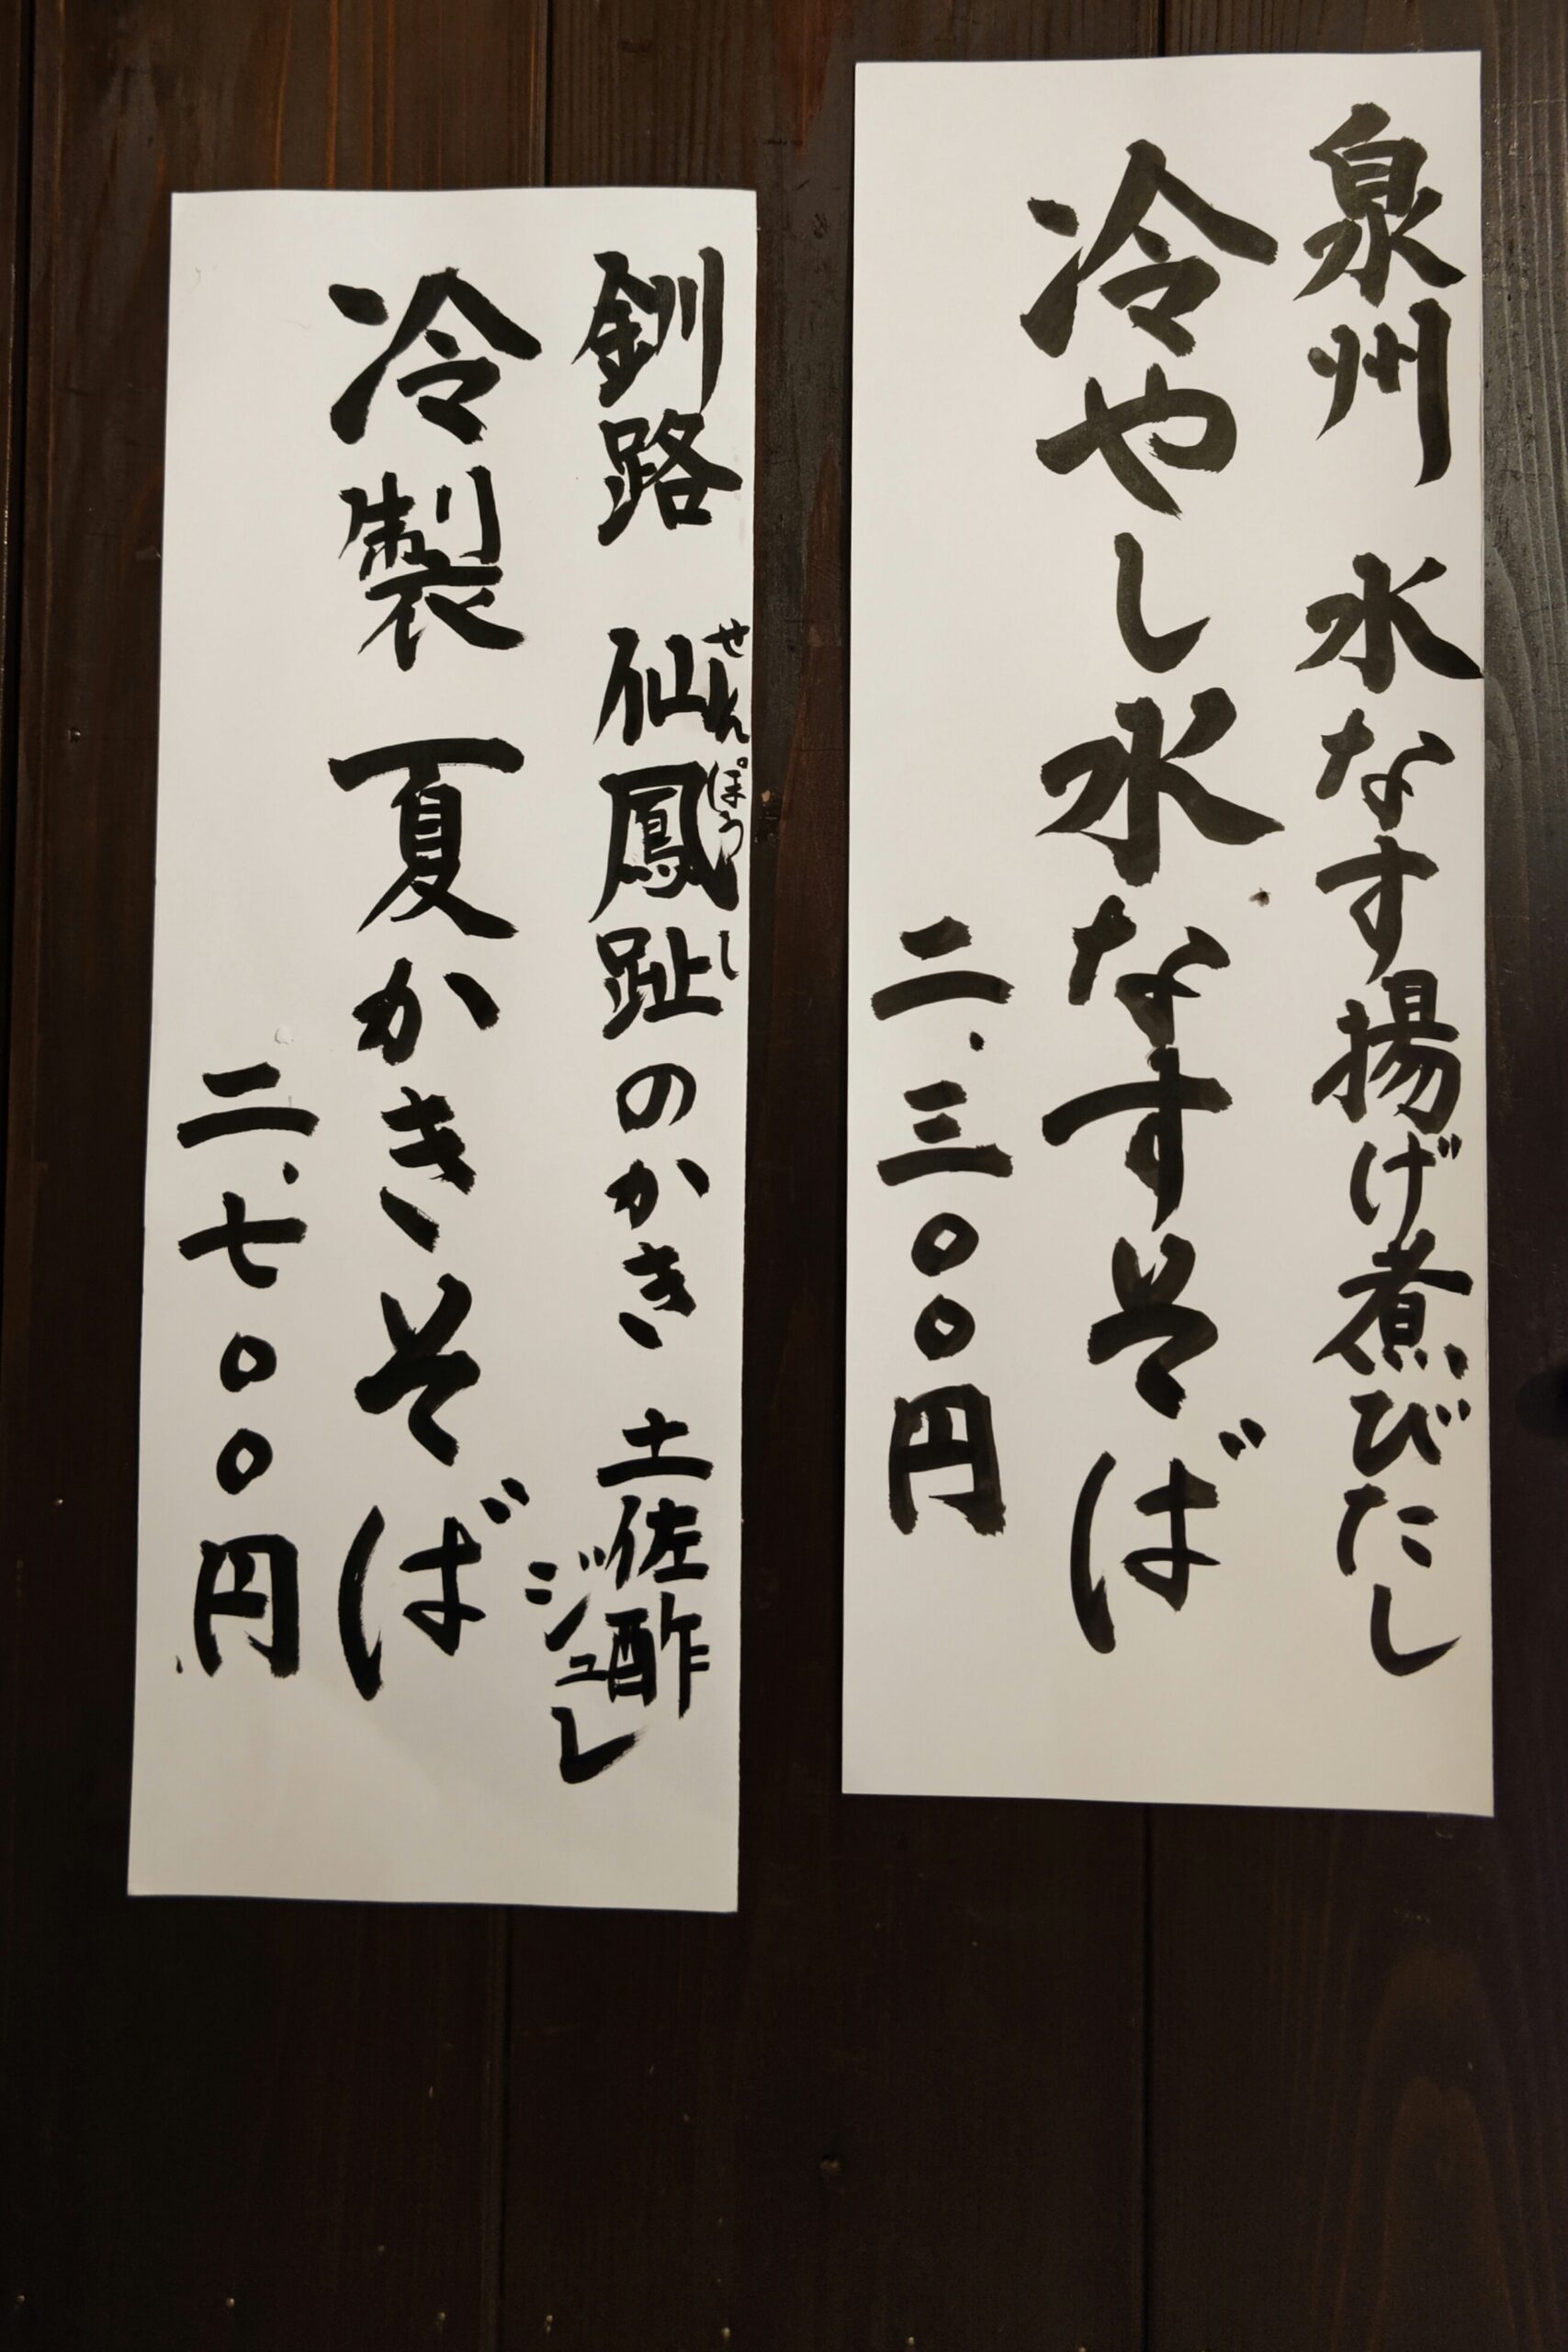 泉州 水なす揚げ煮びたし
冷やし水なすそば
二.三〇〇円
釧路 仙鳳趾のかき 土佐酢
せんぽうし
ジュレ
冷製 夏かきそば
二.七〇〇円